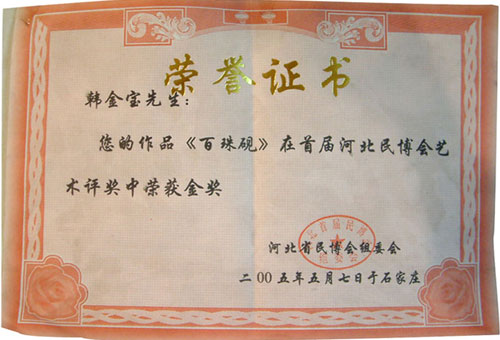 荣誉证书
韩金宝先生：
您的作品《百珠砚》在首届河北民博会艺
术评奖中荣获金奖
河北省民博会组委会
二00五年五月七日于石家庄